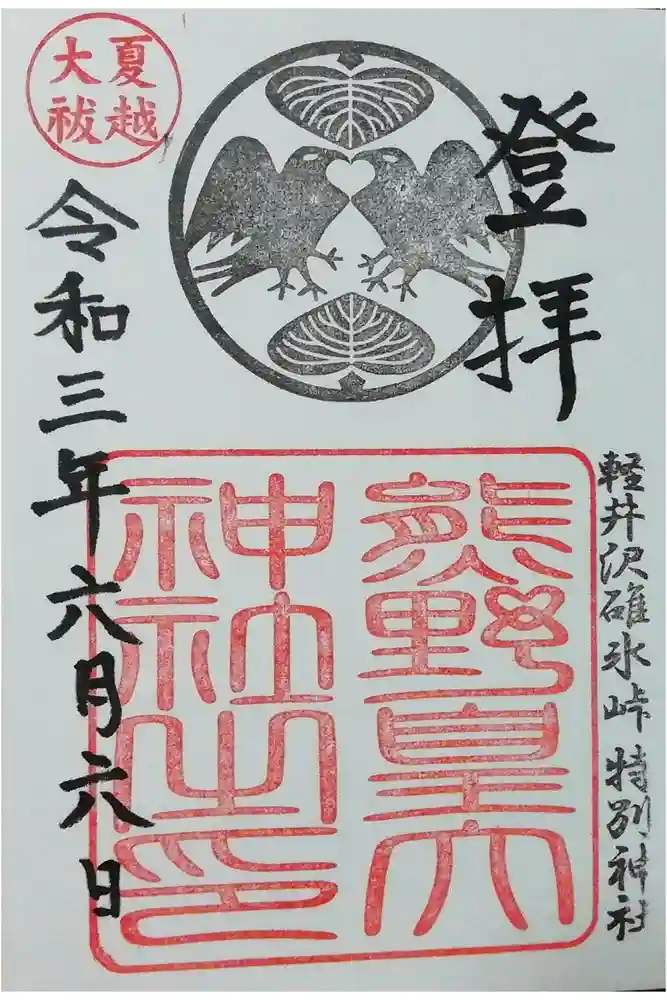 登拝
軽井沢碓氷峠 特別神社
熊野皇大
神社之印
夏越
大祓
令和三年六月六日